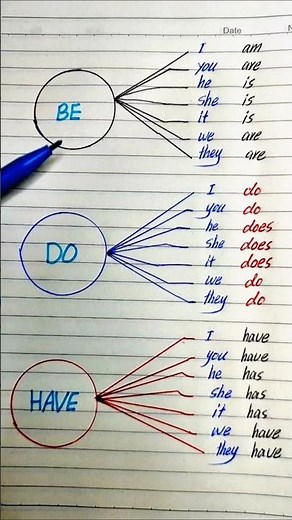 Date
BE
I am
you are
he is
she is
it is
we are
they are
DO
I do
you do
he does
she does
it does
we do
they do
HAVE
I have
you have
he has
she has
it has
we have
they have